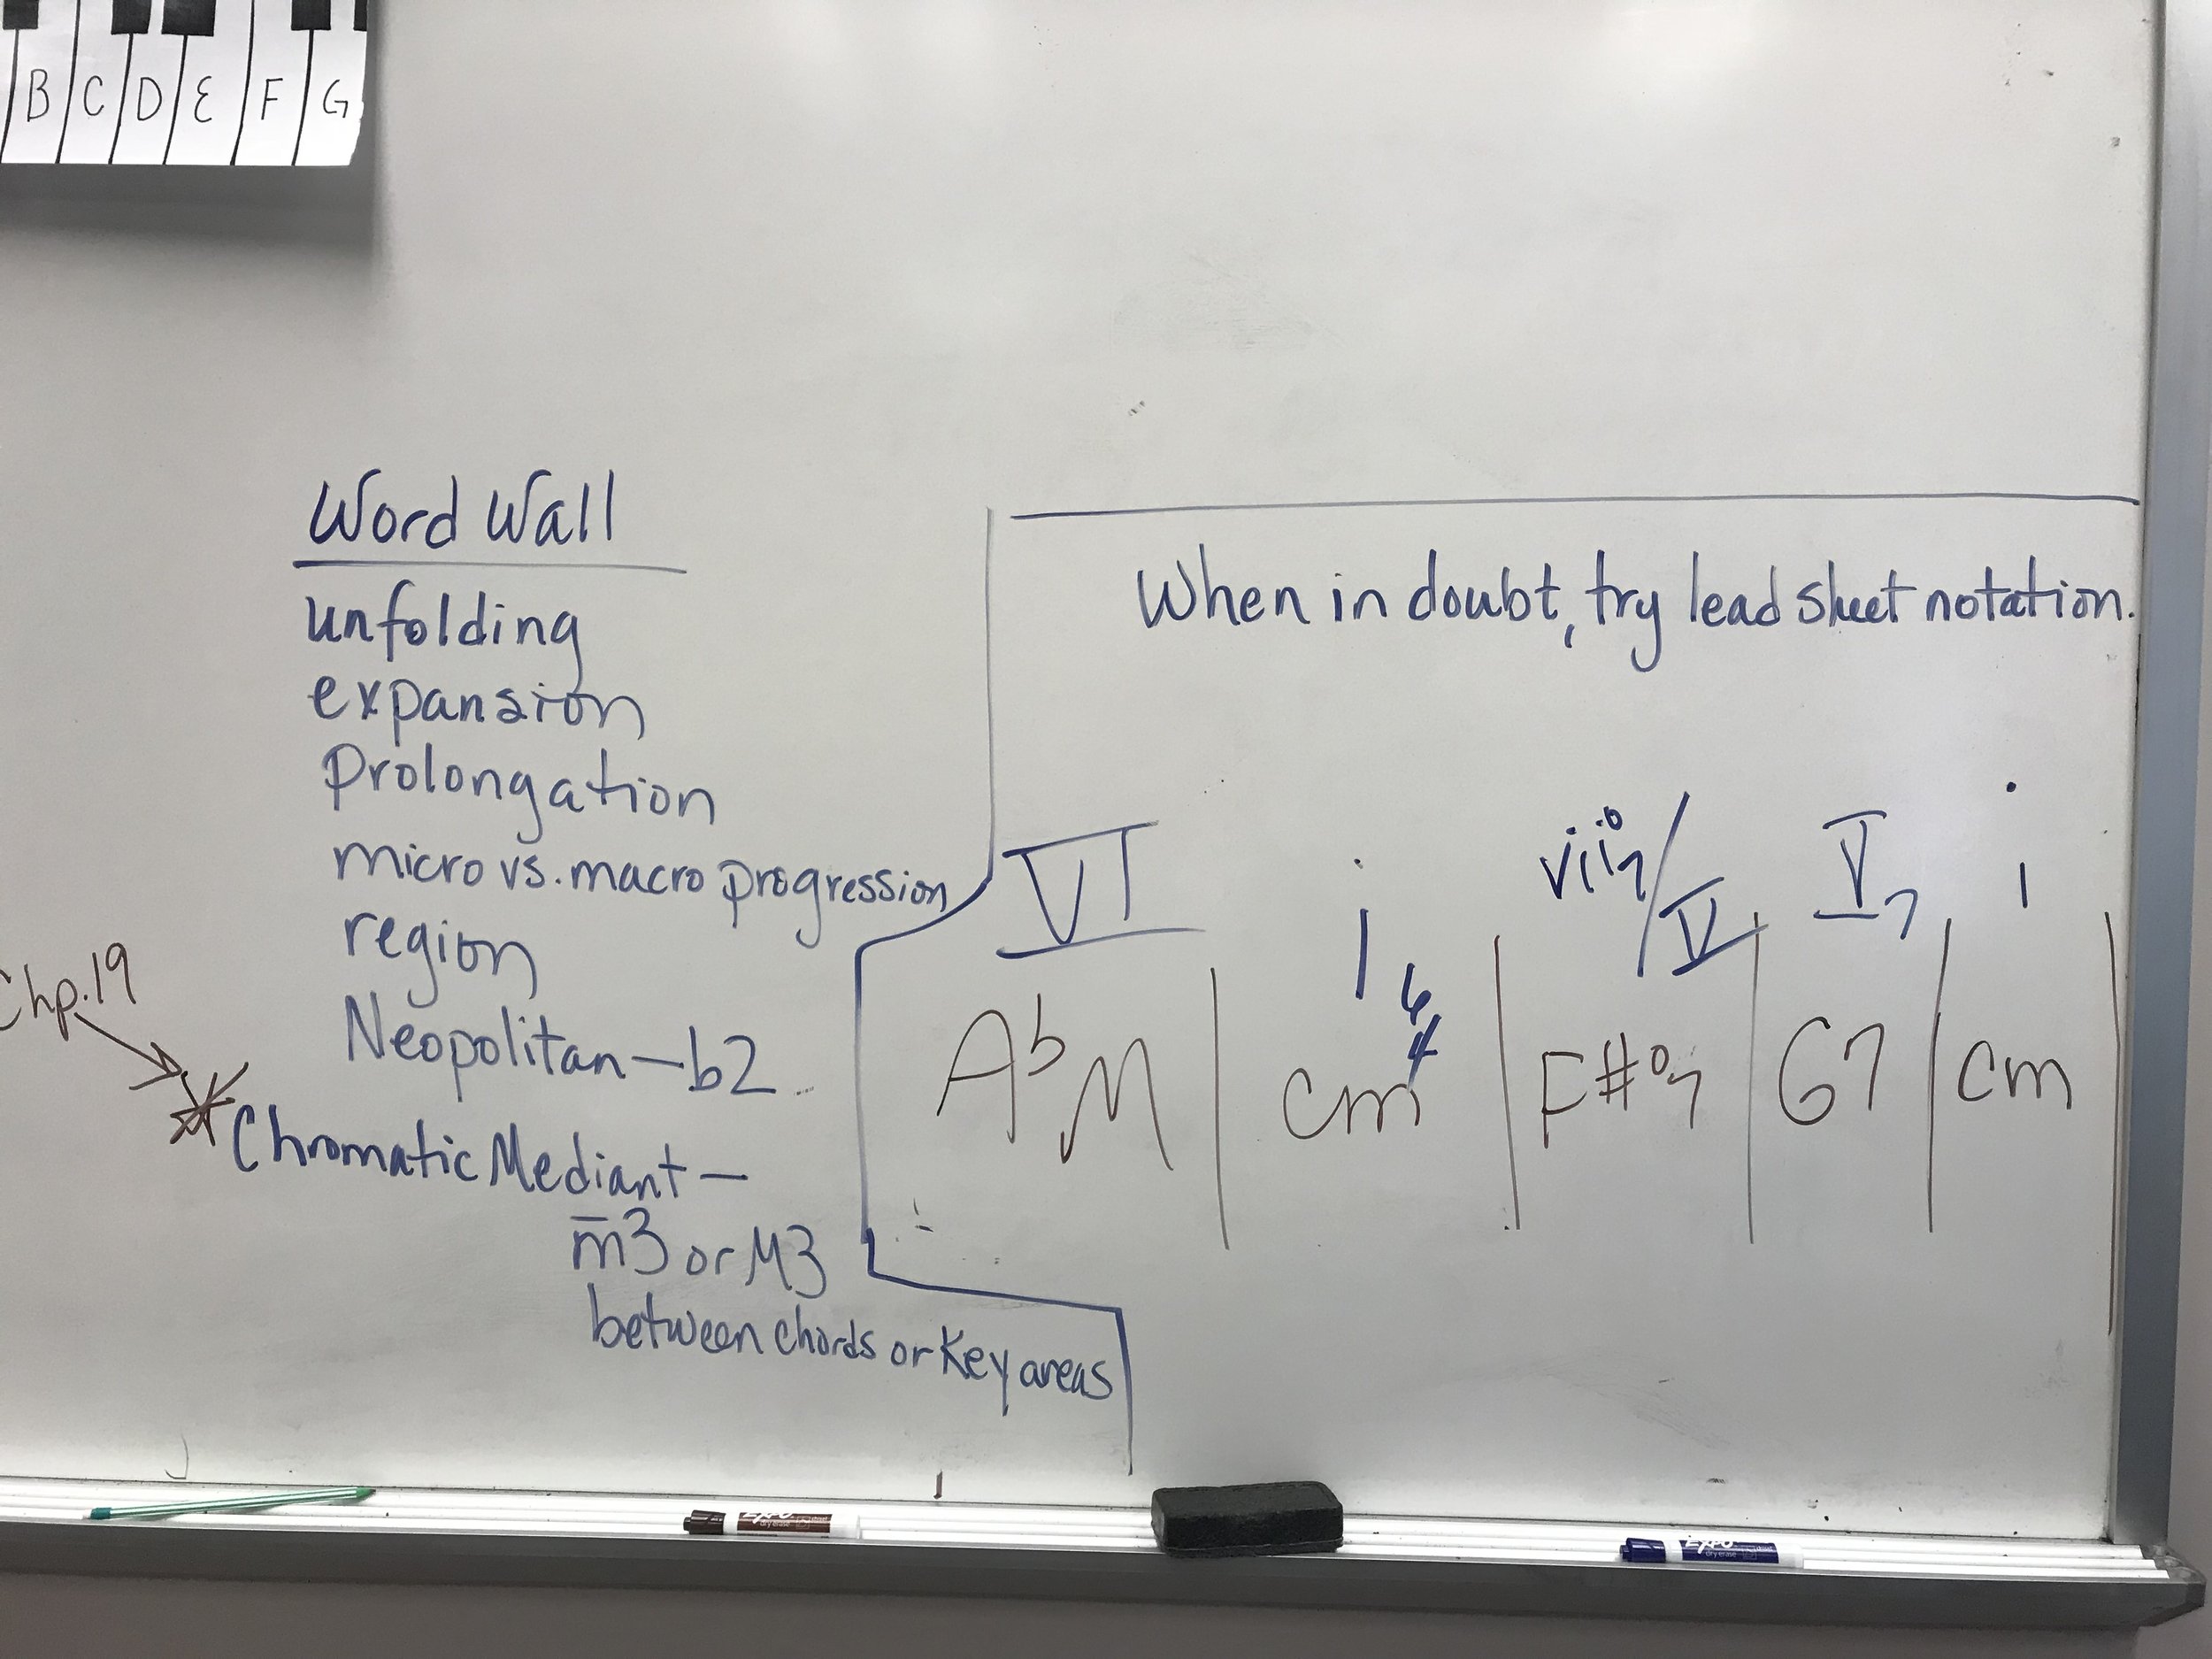 B C D E F G
Word Wall
unfolding
expansion
Prolongation
micro vs. macro progression
region
Neopolitan — b2
Chp. 19
Chromatic Mediant —
m3 or M3
between chords or Key areas
When in doubt, try lead sheet notation.
VI i 6/4 vii°7/V V7 i
A♭M | cm | F#°7 | G7 | cm |
EXPO
dry erase
EXPO
dry erase